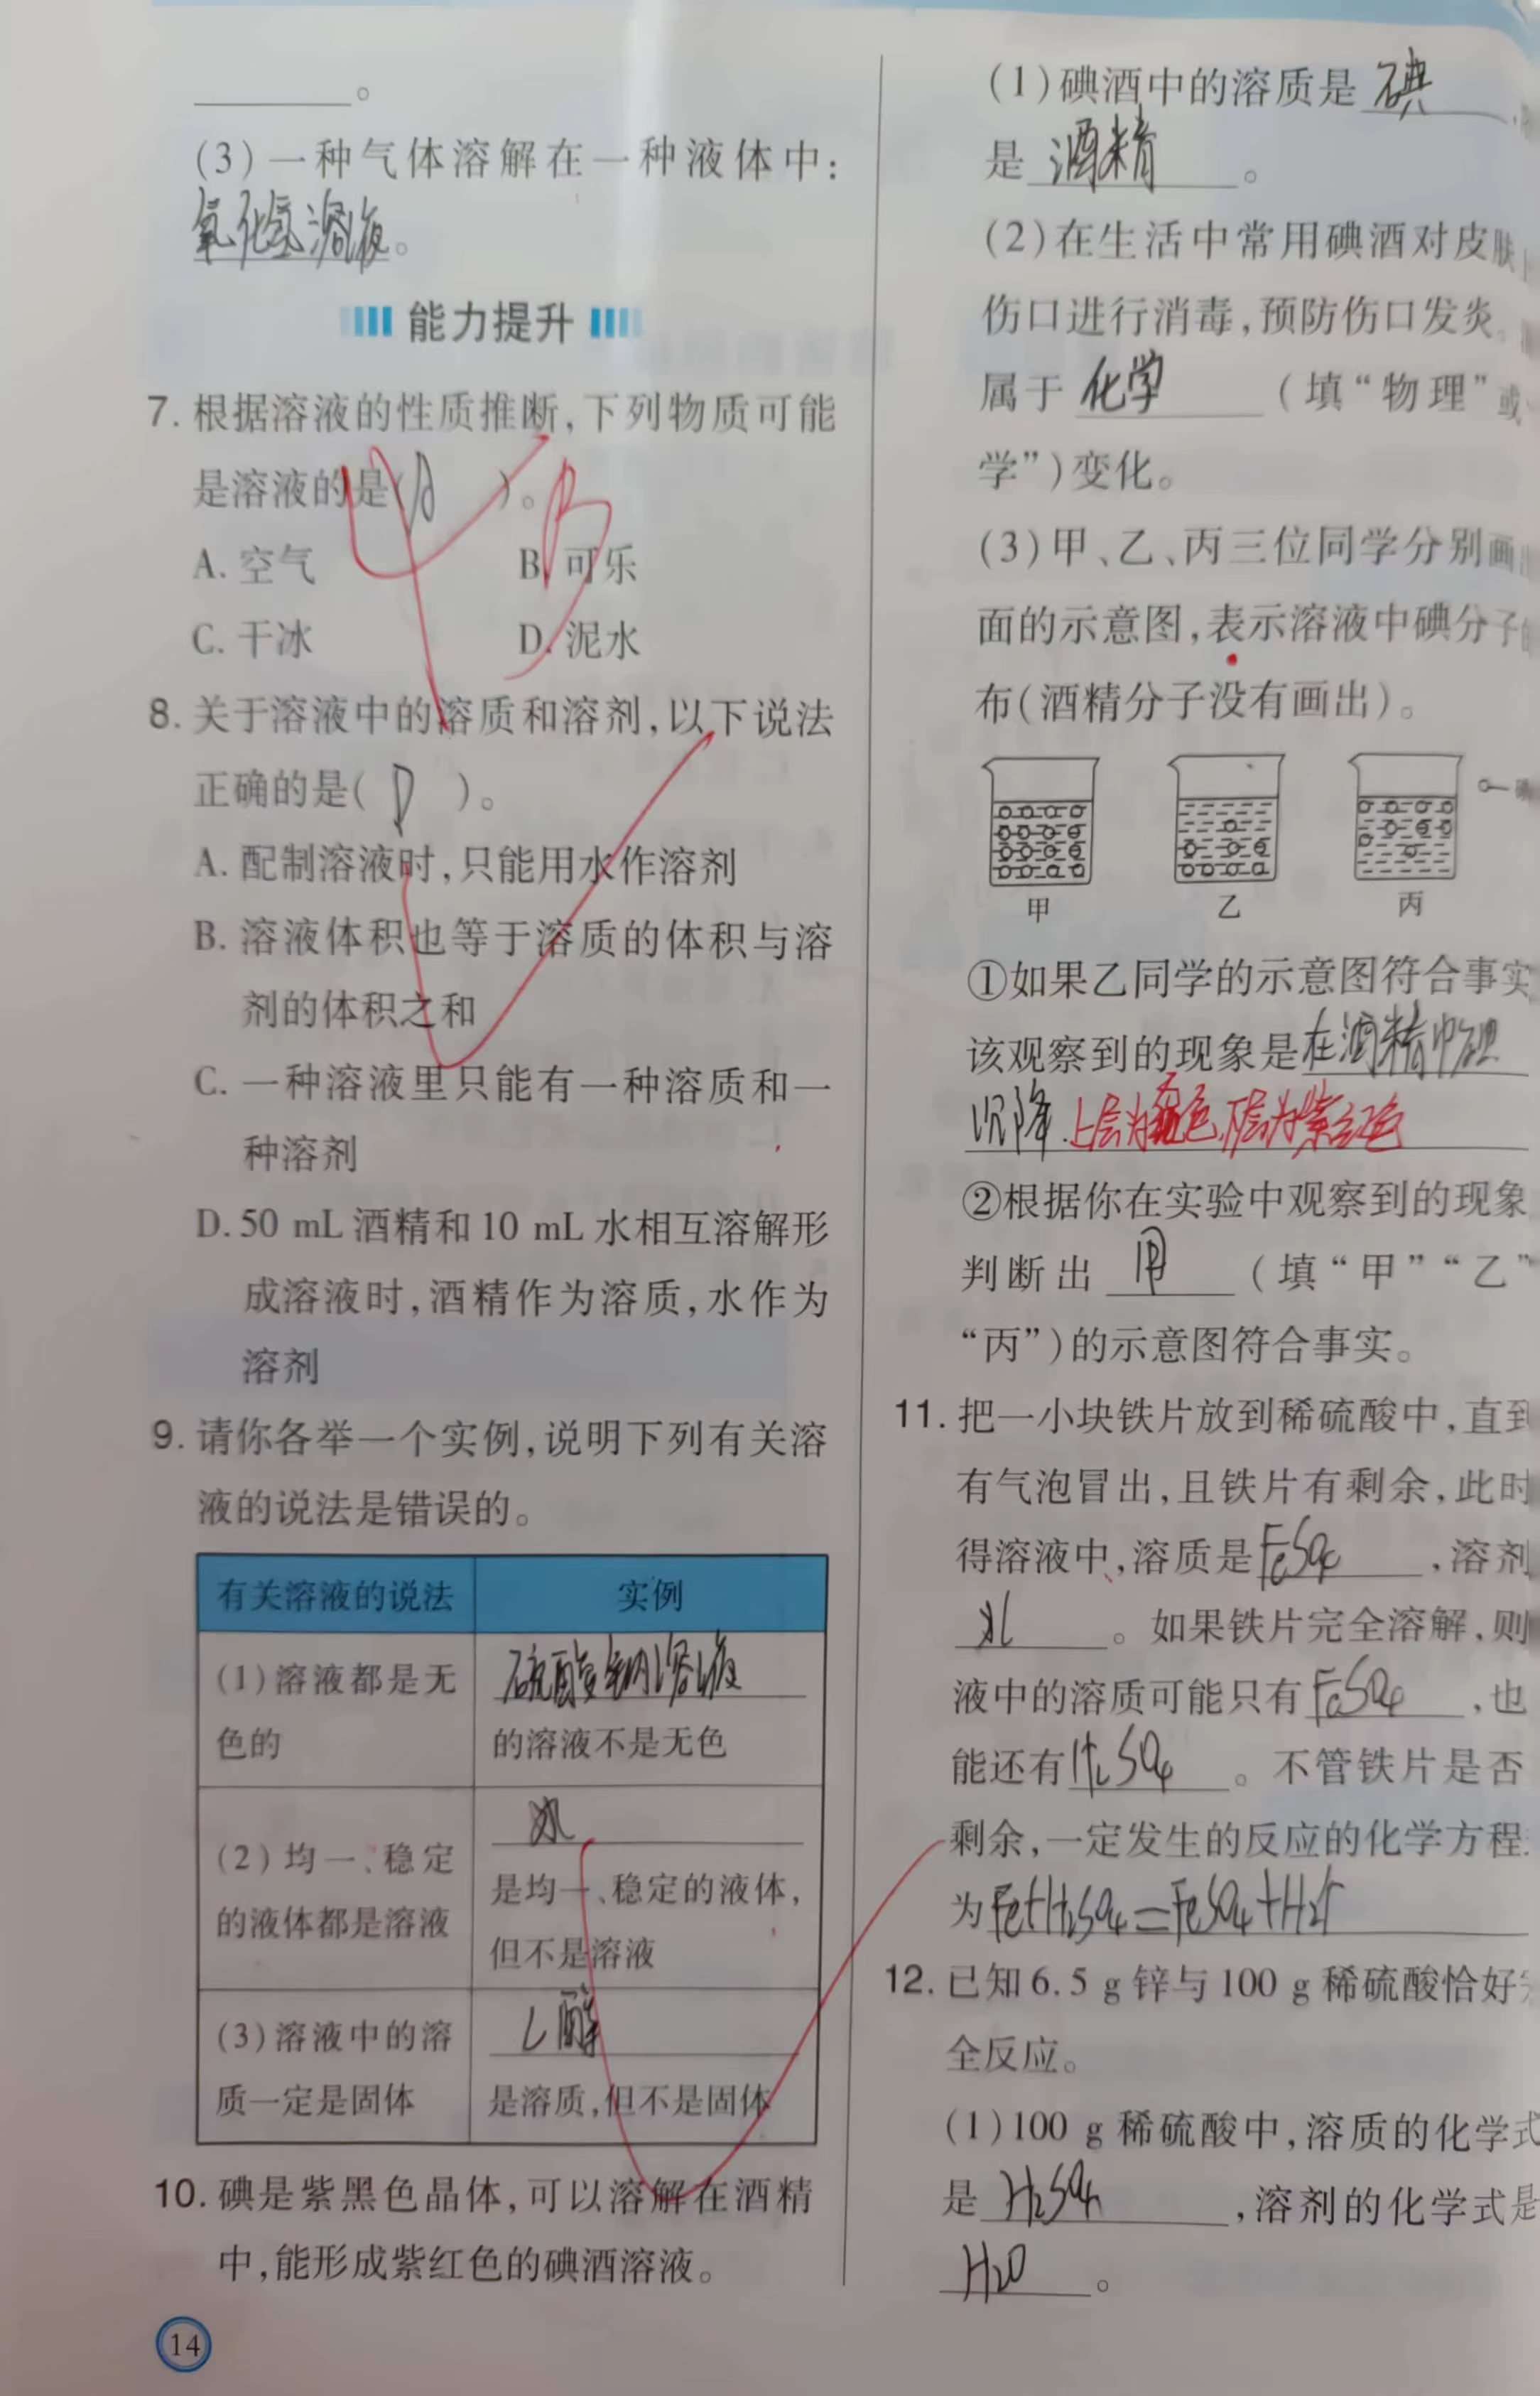 。
(3)一种气体溶解在一种液体中:
氧化氢溶液。
能力提升
7. 根据溶液的性质推断,下列物质可能
是溶液的是( )。
B
A. 空气 B. 可乐
C. 干冰 D. 泥水
8. 关于溶液中的溶质和溶剂,以下说法
正确的是( D )。
A. 配制溶液时,只能用水作溶剂
B. 溶液体积也等于溶质的体积与溶
剂的体积之和
C. 一种溶液里只能有一种溶质和一
种溶剂
D. 50 mL 酒精和 10 mL 水相互溶解形
成溶液时,酒精作为溶质,水作为
溶剂
9. 请你各举一个实例,说明下列有关溶
液的说法是错误的。
有关溶液的说法 实例
(1)溶液都是无
色的
硫酸铜溶液
的溶液不是无色
(2)均一、稳定
的液体都是溶液
水
是均一、稳定的液体,
但不是溶液
(3)溶液中的溶
质一定是固体
乙醇
是溶质,但不是固体
10. 碘是紫黑色晶体,可以溶解在酒精
中,能形成紫红色的碘酒溶液。
14
(1)碘酒中的溶质是 碘
是 酒精 。
(2)在生活中常用碘酒对皮肤
伤口进行消毒,预防伤口发炎。
属于 化学 (填“物理”或
学”)变化。
(3)甲、乙、丙三位同学分别画
面的示意图,表示溶液中碘分子
布(酒精分子没有画出)。
甲 乙 丙
①如果乙同学的示意图符合事实
该观察到的现象是在酒精中
沉降. 上层为无色,下层为紫红色
②根据你在实验中观察到的现象
判断出 甲 (填“甲”“乙”
“丙”)的示意图符合事实。
11. 把一小块铁片放到稀硫酸中,直到
有气泡冒出,且铁片有剩余,此时
得溶液中,溶质是 FeSO4 ,溶剂
水 。如果铁片完全溶解,则
液中的溶质可能只有 FeSO4 ,也
能还有 H2SO4 。不管铁片是否
剩余,一定发生的反应的化学方程
为 Fe+H2SO4=FeSO4+H2↑
12. 已知 6.5 g 锌与 100 g 稀硫酸恰好
全反应。
(1)100 g 稀硫酸中,溶质的化学式
是 H2SO4 ,溶剂的化学式是
H2O 。